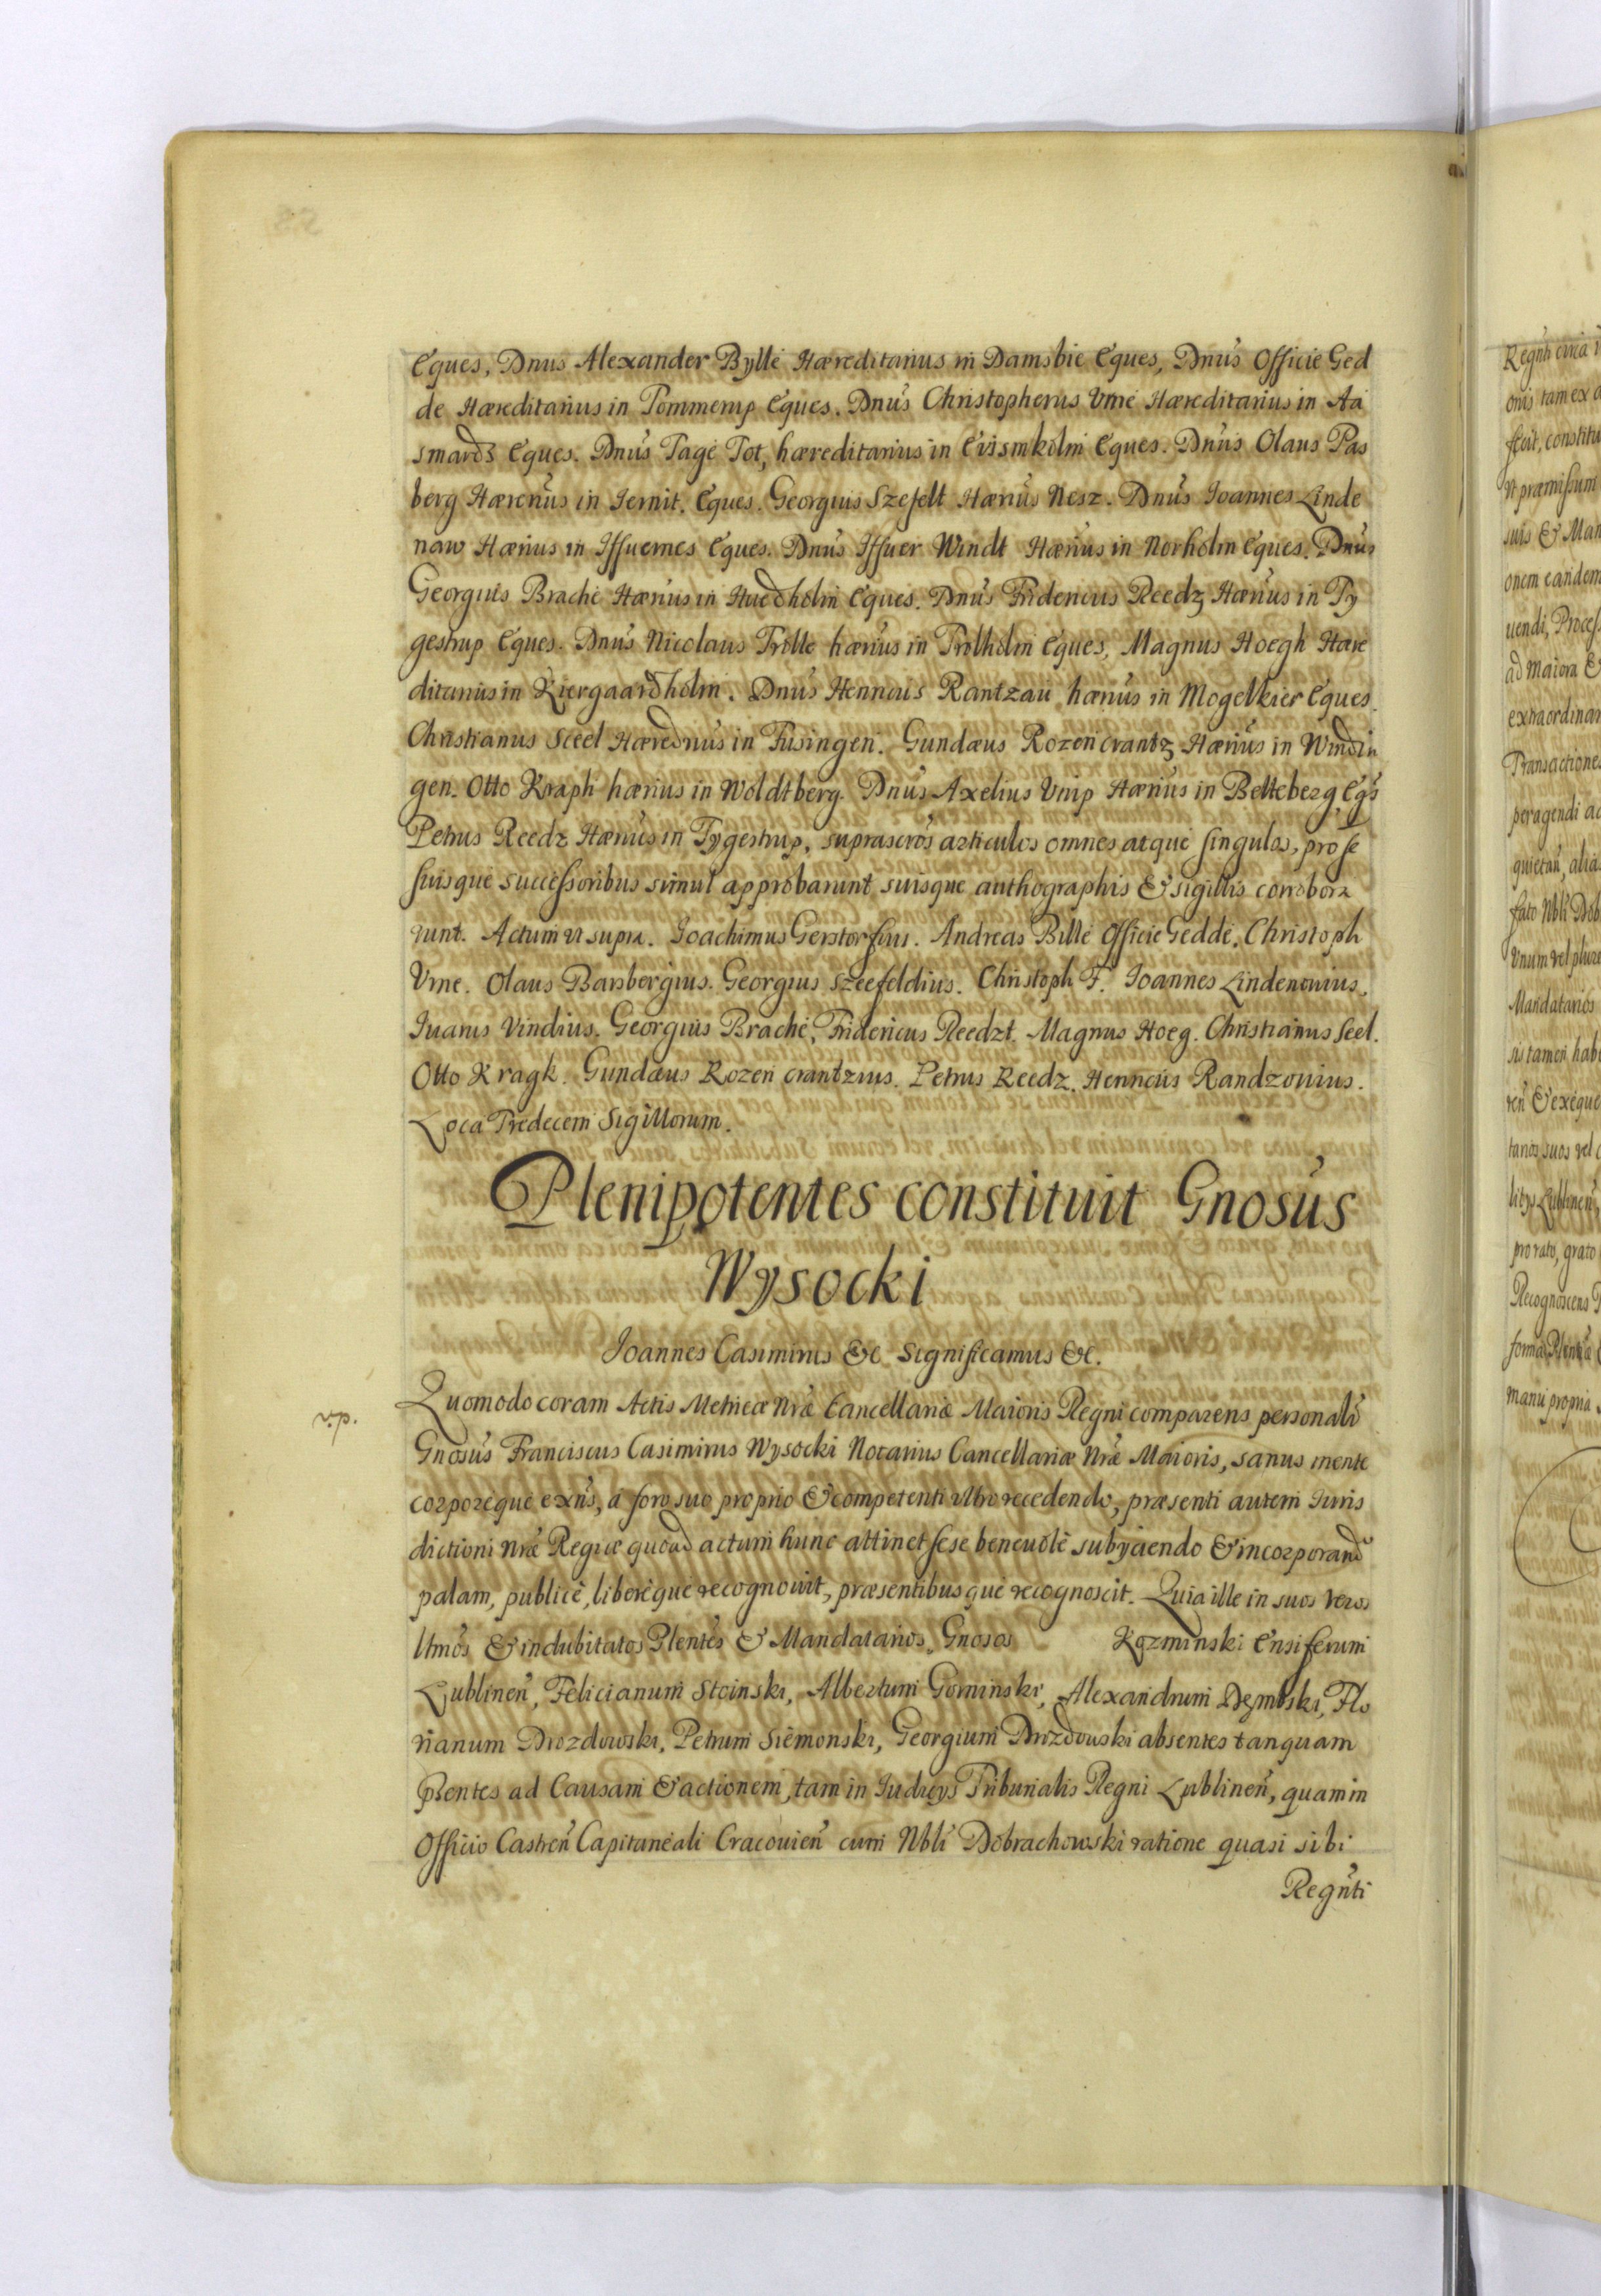 Eques, Dnus Alexander Bylle Hæreditarius in Damsbie Eques, Dnus Officie Ged
de Hæreditarius in Tommerup Eques. Dnus Christopherus Vrne Hæreditarius in Aa
smards Eques. Dnus Tage Tot, hæreditarius in Eismkolm Eques. Dnus Olaus Pas
berg Hærenus in Iernit. Eques. Georgius Szefelt Hærius Nesz. Dnus Ioannes Linde
naw Hærius in Iffuernes Eques. Dnus Iffuer Windt Hærius in Norholm Eques. Dnus
Georgius Brache Hærius in Huedholm Eques. Dnus Fridericus Reedz Hærius in Ty
gestrup Eques. Dnus Nicolaus Trolle hærius in Trolholm Eques, Magnus Hoegh Hære
ditarius in Kiergaardholm. Dnus Henricus Rantzau hærius in Mogelkier Eques.
Christianus Sceel Hæredrius in Fusingen. Gundæus Rozencrantz Hærius in Windin
gen. Otto Kraph hærius in Woldtberg. Dnus Axelius Vrup Hærius in Belteberg, Eqs
Petrus Reedz Hærius in Tygestrup, suprascros articulos omnes atque singulos, pro se
suisque successoribus simul approbarunt suisque authographis & sigillis corrobora
runt. Actum vt supra. Joachimus Gerstorfius. Andreas Bille Officie Gedde. Christoph
Vrne. Olaus Parsbergius. Georgius Szeefeldius. Christoph F. Ioannes Lindenouius.
Iuarus Vindius. Georgius Brache, Fridericus Reedzt. Magnus Hoeg. Christianus Seel.
Otto Kragk. Gundæus Rozen crantzius. Petrus Reedz. Henricus Randzouius.
Loca Tredecem Sigillorum.
Plenipotentes constituit Gnosus
Wysocki
Ioannes Casimirus &c Significamus &c.
v.p.
Quomodo coram Actis Metricæ Nræ Cancellariæ Maioris Regni comparens personalr
Gnosus Franciscus Casimirus Wysocki Notarius Cancellariæ Nræ Maioris, sanus mente
corporeque exns, a foro suo proprio & competenti vltro recedendo, præsenti autem Iuris
dictioni Nræ Regiæ quoad actum hunc attinet sese beneuole subyciendo & incorporand
palam, publice, libereque recognouit, præsentibusque recognoscit. Quia ille in suos veros
ltmos & indubitatos Plentes & Mandatarios. Gnosos Kozminski Ensiferum
Lublinen, Felicianum Stoinski, Albertum Gorninski, Alexandrum Dembski, Flo
rianum Drozdowski, Petrum Siemonski, Georgium Drozdouski absentes tanquam
pntes ad Causam & actionem, tam in Iudicys Tribunalis Regni Lublinen, quam in
Officio Castren Capitaneali Cracouien cum Nbli Dobrachowski ratione quasi sibi
Regnti